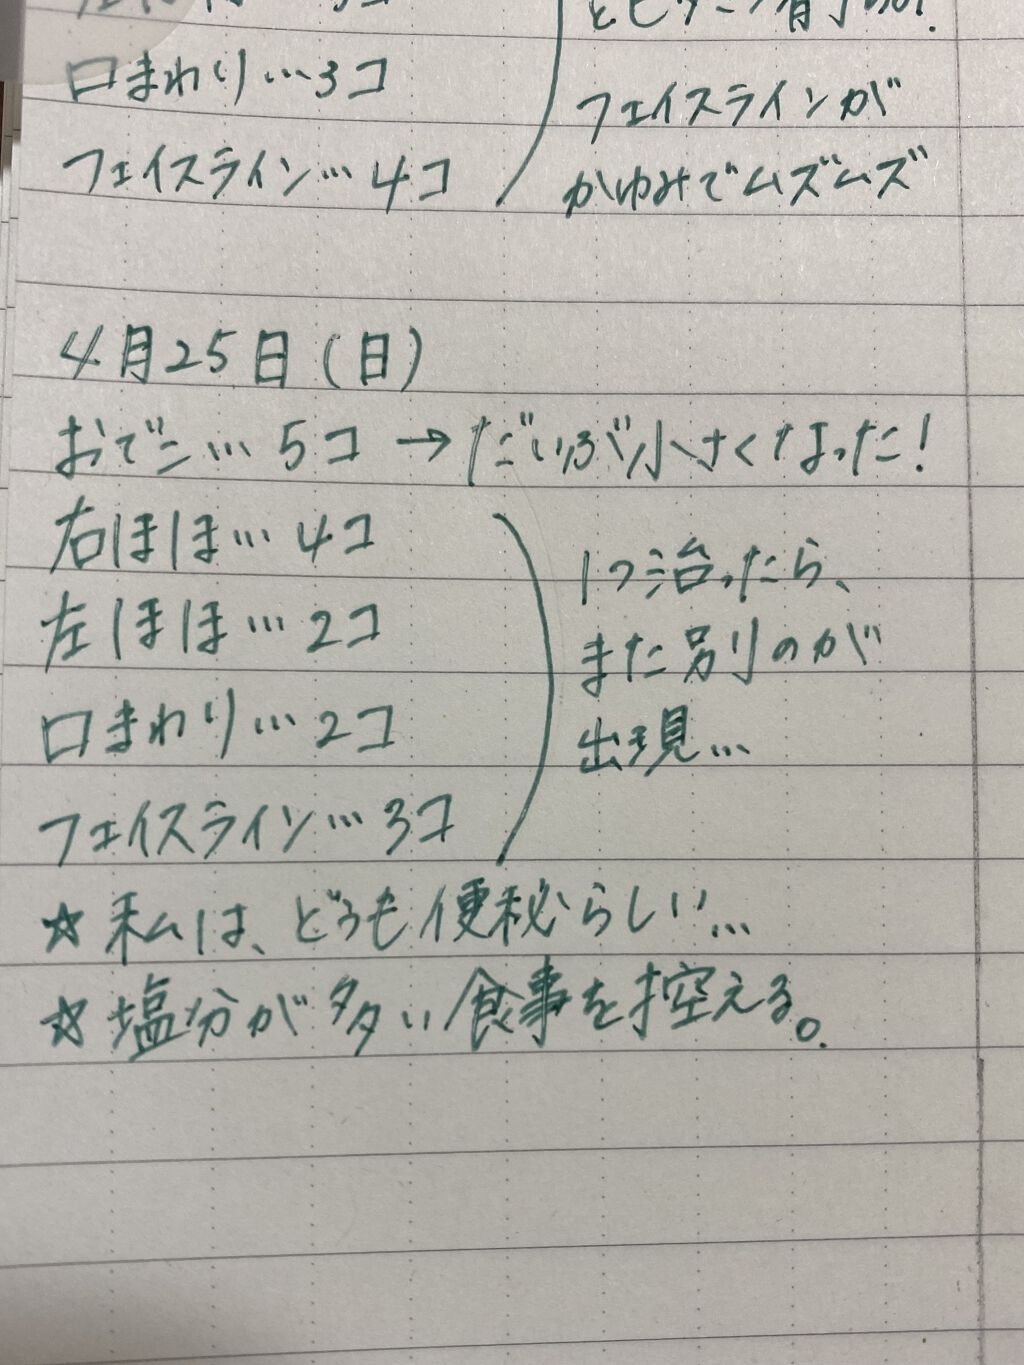 口まわり…3コ
フェイスライン…4コ
フェイスラインが
かゆみでムズムズ
4月25日(日)
おでこ…5コ→だいぶ小さくなった!
右ほほ…4コ
左ほほ…2コ
口まわり…2コ
フェイスライン…3コ
1つ治ったら、
また別のが
出現…
☆私は、どうも便秘らしい…
☆塩分が多い食事を控える。